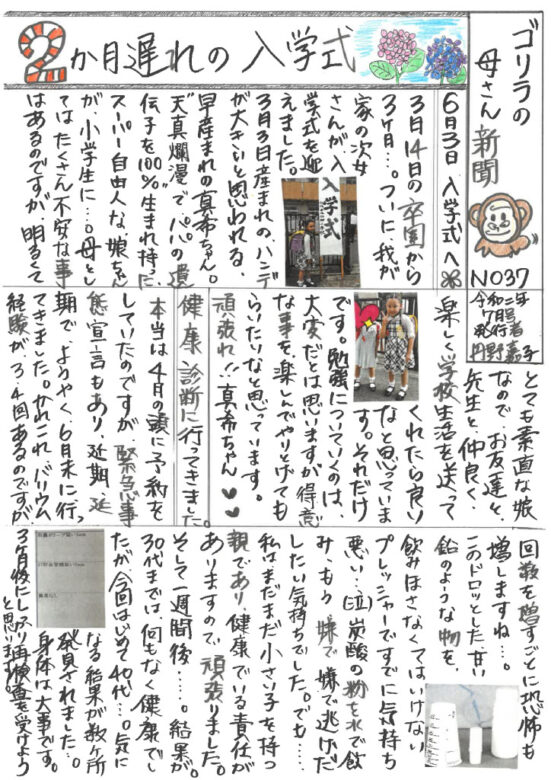 2か月遅れの入学式
ゴリラの
母さん新聞
NO37
令和二年
7月号
発行者
円野嘉子
6月3日 入学式へ
3月14日の卒園から
3ヶ月…。ついに我が
家の次女
さんが入
学式を迎
えました。
3月3日産まれの、ハンデ
が大きいと思われる、
早産まれの真希ちゃん。
天真爛漫で、パパの遺
伝子を100%生まれ持った
スーパー自由人な、娘ちゃん
が、小学生に…。母とし
てはたくさん不安な事
はあるのですが、明るくて
入学式
とても素直な娘
なので、お友達と、
先生と、仲良く、
楽しく学校生活を送って
くれたら良い
なと思っていま
す。それだけ
です。勉強についていくのは、
大変だとは思いますが得意
な事を、楽しんでやりとげても
らいたいなと思っています。
頑張れ!!真希ちゃん
健康診断に行ってきました。
本当は4月の頭に予約を
してたのですが、緊急事
態宣言もあり、延期、延
期で、ようやく6月末に行っ
てきました。かれこれ、バリウム
経験が、3、4回あるのですが、
回数を増すごとに恐怖も
増しますね…。
このドロッとした甘い
鉛のような物を、
飲みほさなくてはいけない
プレッシャーですでに気持ち
悪い…(泣)炭酸の粉を水で飲
み、もう嫌で嫌で逃げだ
したい気持ちでした。でも…。
私はまだまだ小さい子を持つ
親であり、健康でいる責任が
ありますので、頑張りました。
そして一週間後…。結果が。
30代までは、何もなく健康でし
たが、今回はじめて40代…。気に
なる結果が数ヶ所
発見されました…。
身体は大事です。
3ヶ月後にしっかり再検査を受けよう
と思います。